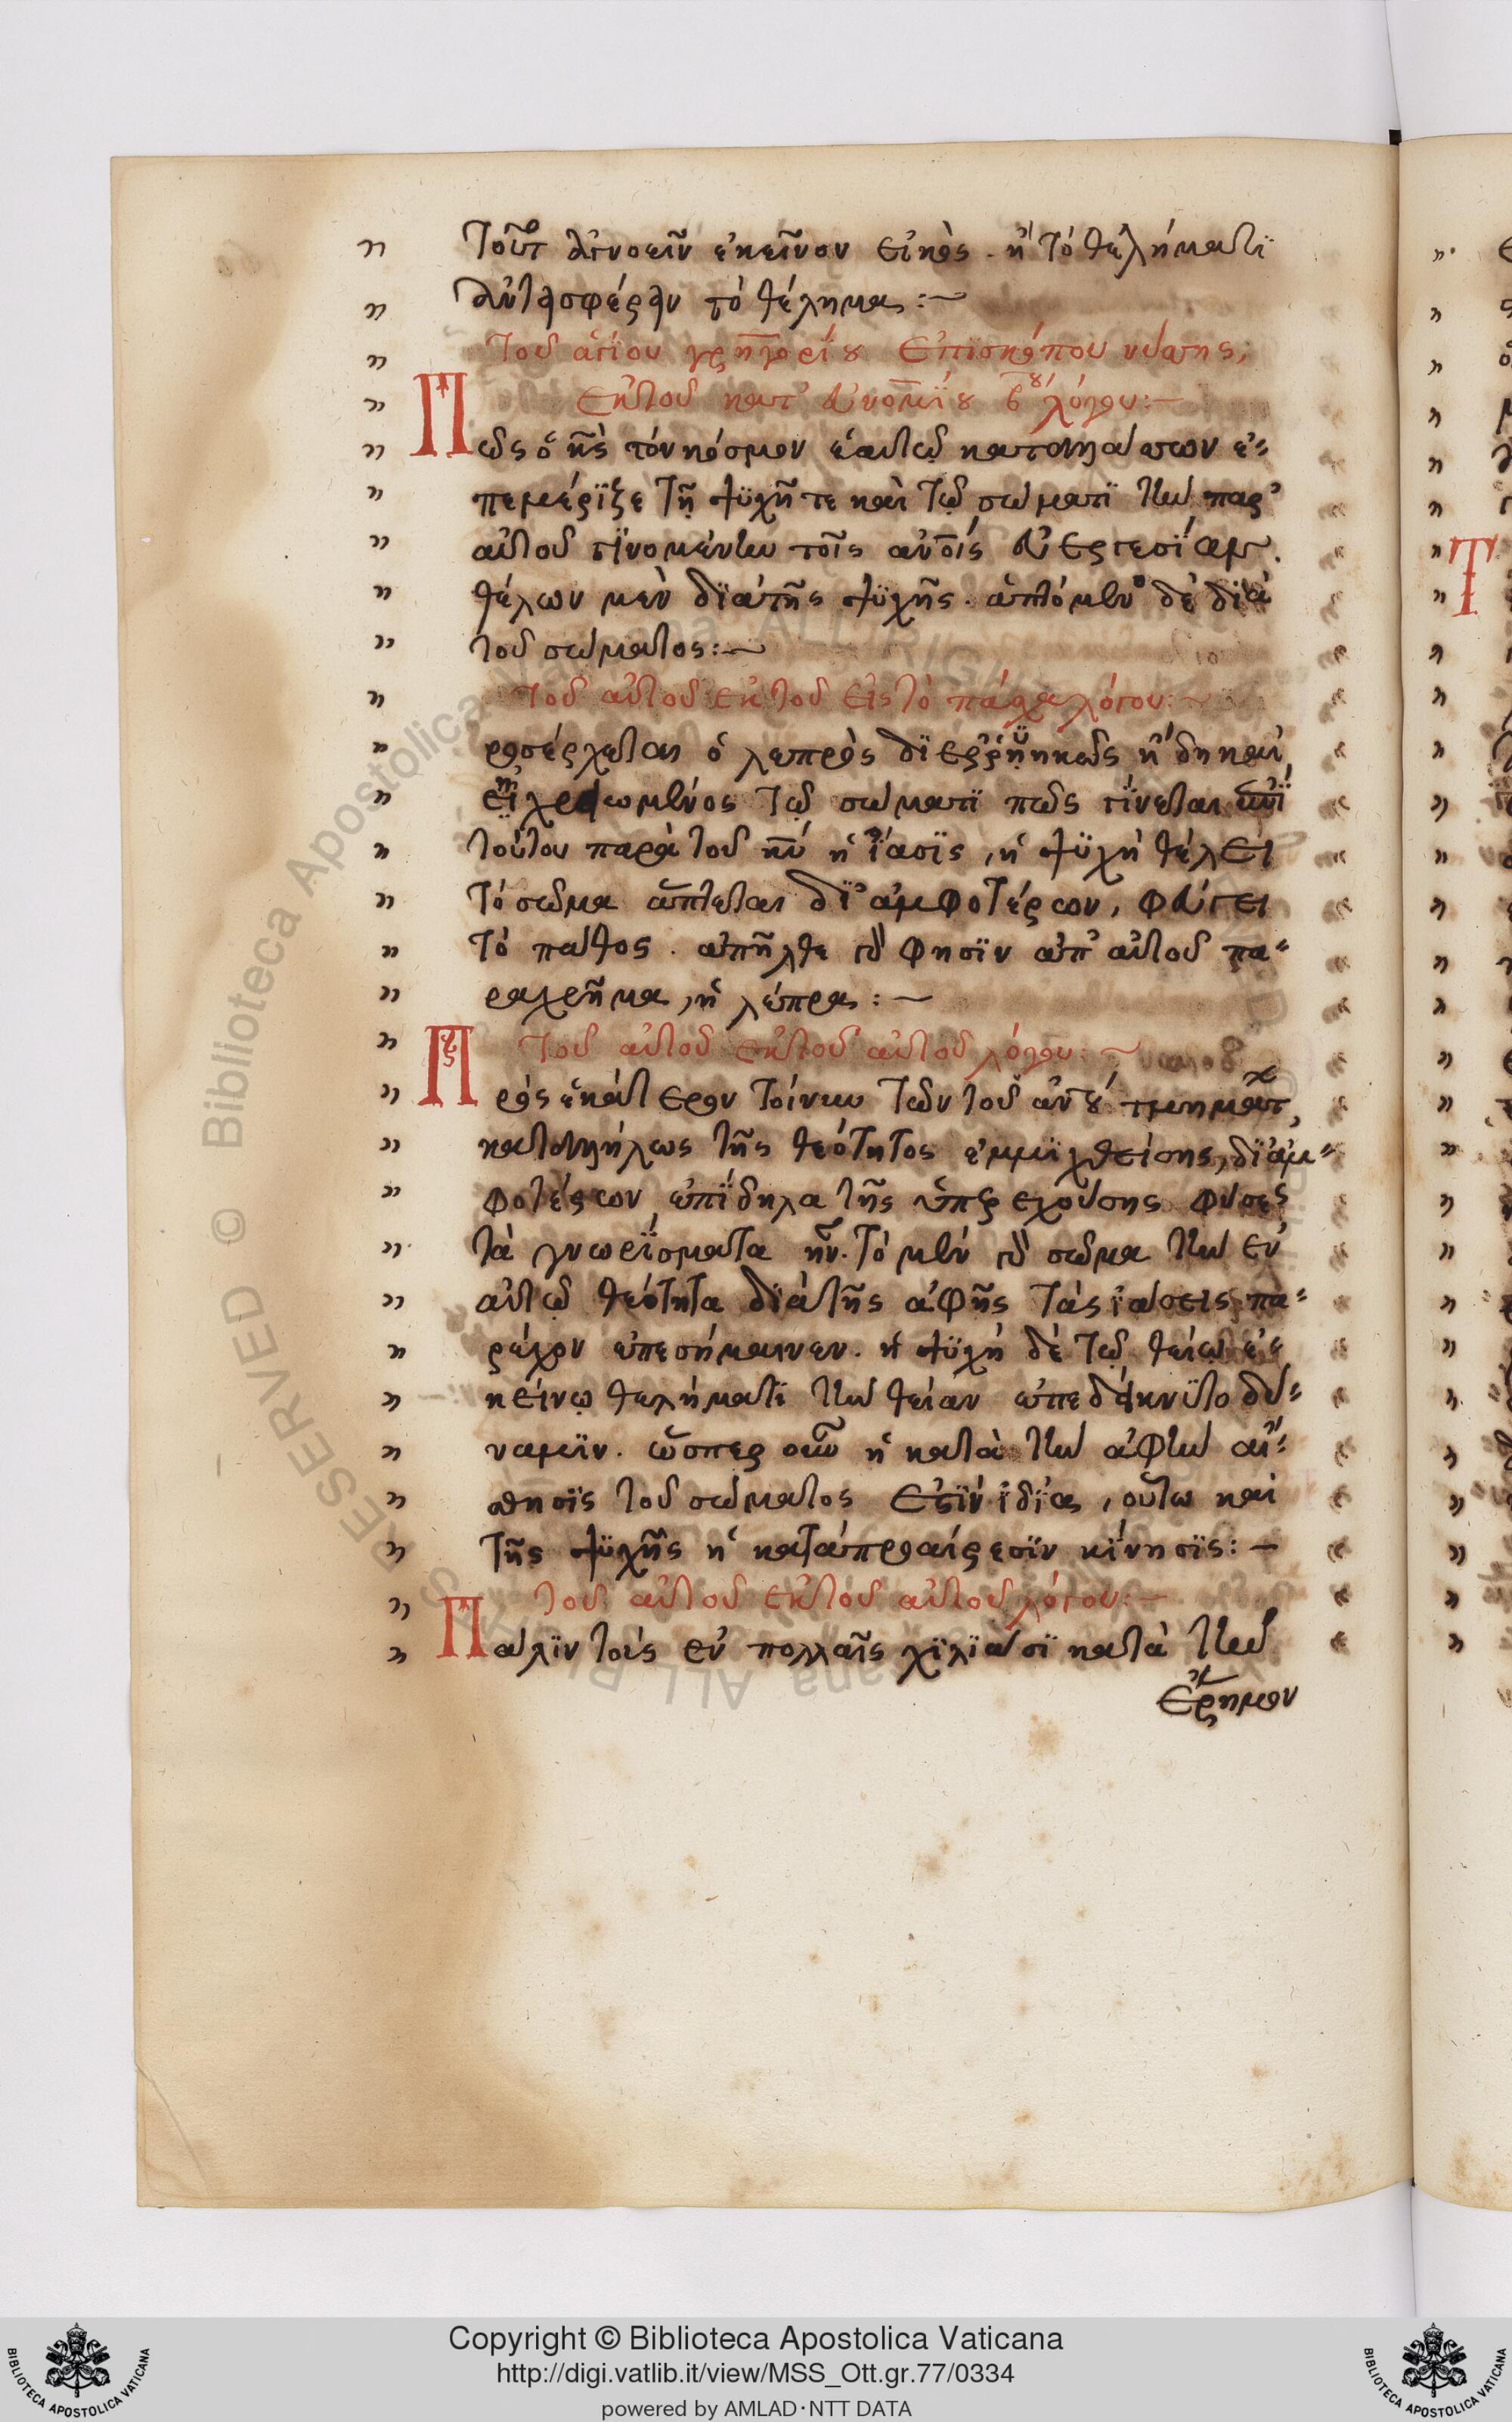 τοῦτ ἀγνοεῖν ἐκεῖνον εἰκὸς. ἢ τὸ θελήματϊ
ἀντεισφέρειν τὸ θέλημα:~
Τοῦ ἁγίου γρηγορίου Ἐπισκόπου νύσης,
Ἐκ τοῦ κατ' Εὐνομΐου β̅ου λόγου:~
Πῶς ὁ κ̅ς̅ τὸν κόσμον ἑαυτῷ καταλλάσσων ἐ-
πεμέρϊζε τῇ ψϋχῇ τε καὶ τῷ σώματϊ τὴν παρ'
αὐτοῦ γϊνομένην τοῖς ἀν̅ο̅ις εὐεργεσίαν.
θέλων μὲν δϊὰ τῆς ψϋχῆς. ἁπτόμενο δὲ δϊὰ
τοῦ σώματος:~
Τοῦ αὐτοῦ ἐκ τοῦ εἰς τὸ πάσχα λόγου:~
ροσέρχεται ὁ λεπρὸς δϊερρϋηκὼς ἤδη καὶ
τούτου παρὰ τοῦ κ̅υ̅ ἡ ἴασϊς, ἡ ψϋχὴ θέλει
τὸ σῶμα ἅπτεται δϊ' ἀμφοτέρων, φεύγει
τὸ πάθος. ἀπῆλθε γὰρ φησϊν ἀπ' αὐτοῦ πα-
ραχρῆμα, ἡ λέπρα:~
Τοῦ αὐτοῦ ἐκ τοῦ αὐτοῦ λόγου:~
Πρὸς ἑκάτερον τοίνυν τῶν τοῦ ἀν̅ο̅υ τμημάτ,
καταλλήλως τῆς θεότητος ἐμμϊχθείσης, δϊ' ἀμ-
φοτέρων ἐπΐδηλα τῆς ὑπερεχούσης φύσεως
τὰ γνωρΐσματα ἦν. τὸ μὲν γὰρ σῶμα τὴν ἐν
αὐτῷ θεότητα δϊὰ τῆς ἀφῆς τὰς ϊάσεις πα-
ρέχον ἐπεσήμαινεν. ἡ ψϋχὴ δὲ τῷ θείῳ ἐ-
κείνῳ θελήματϊ τὴν θείαν ἐπεδείκνϋτο δύ-
ναμϊν. ὥσπερ οὖν ἡ κατὰ τὴν ἀφὴν αἴ-
σθησϊς τοῦ σώματος ἐστϊν ϊδϊα, οὕτω καὶ
τῆς ψϋχῆς ἡ κατὰ προαίρεσϊν κΐνησϊς:~
Τοῦ αὐτοῦ ἐκ τοῦ αὐτοῦ λόγου:~
Πάλϊν τοῖς ἐν πολλαῖς χϊλϊάσϊ κατὰ τὴν
ἔρημον
Copyright © Biblioteca Apostolica Vaticana
http://digi.vatlib.it/view/MSS_Ott.gr.77/0334
powered by AMLAD·NTT DATA
BIBLIOTECA APOSTOLICA VATICANA
BIBLIOTECA APOSTOLICA VATICANA